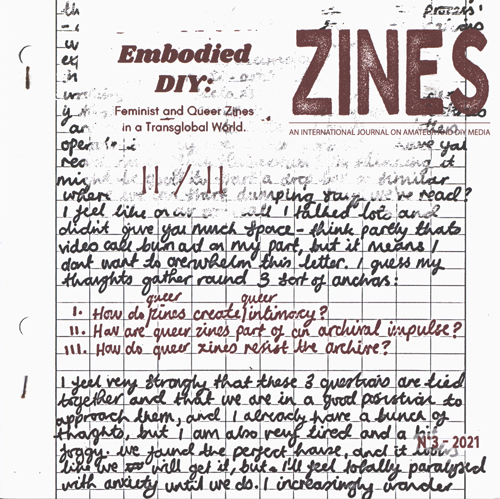 process!
Embodied
DIY:
Feminist and Queer Zines
in a Transglobal World.
ZINES
AN INTERNATIONAL JOURNAL ON AMATEUR AND DIY MEDIA
11/11
similar
where dumping read?
I feel like on call I talked lots and
didn't give you much space - think partly thats
video call burn out on my part, but it means I
dont want to overwhelm this letter. I guess my
thoughts gather round 3 sort of anchors:
queer queer
I. How do zines create intimacy?
II. How are queer zines part of an archival impulse?
III. How do queer zines resist the archive?
I feel very strongly that these 3 questions are tied
together and that we are in a good position to
approach them, and I already have a bunch of
thoughts, but I am also very tired and a bit
foggy. We found the perfect house, and it looks
like we will get it, but I'll feel totally paralysed
with anxiety until we do. I increasingly wonder
N°3 - 2021